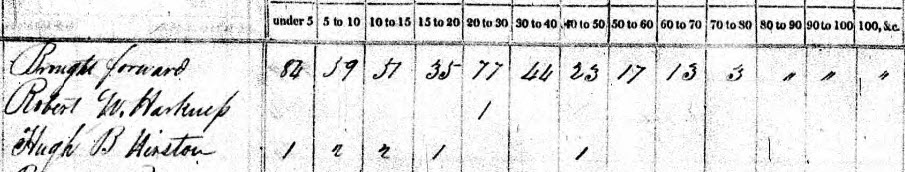 under 5 5 to 10 10 to 15 15 to 20 20 to 30 30 to 40 40 to 50 50 to 60 60 to 70 70 to 80 80 to 90 90 to 100 100, &c.
Brought forward 84 59 51 35 77 44 23 17 13 3 " " "
Robert W. Harkness 1
Hugh B Hinston 1 2 2 1 1